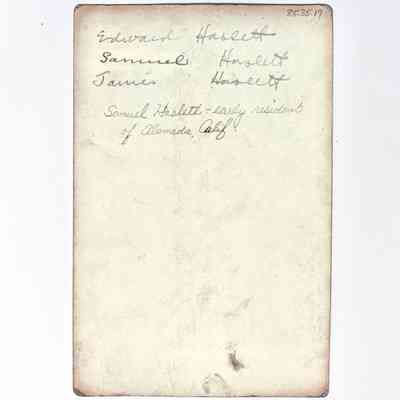 85.35.19
Edward Haslett
Samuel Haslett
James Haslett
Samuel Haslett - early resident
of Alameda, Calif